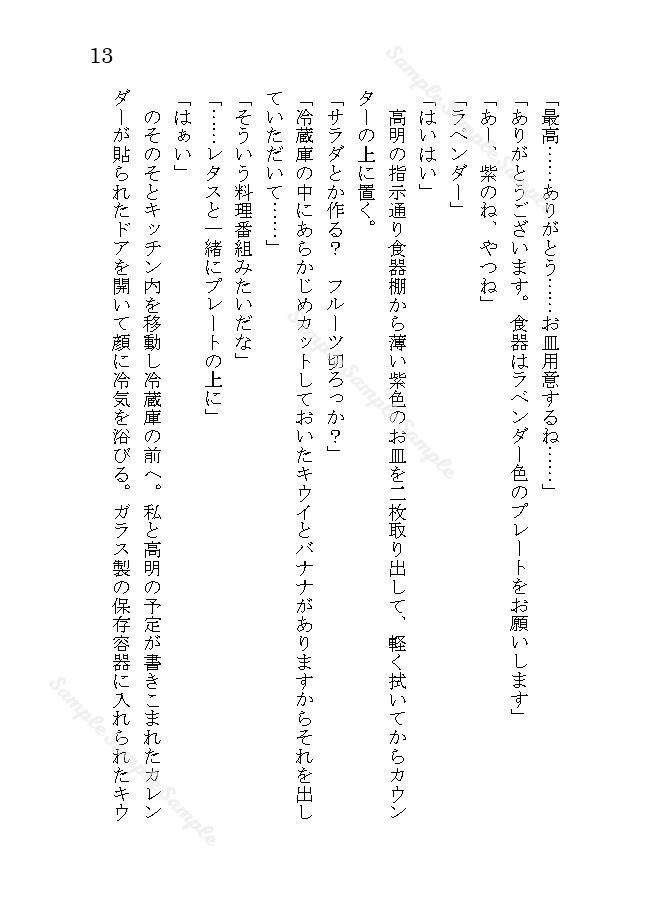 13
「最高……ありがとう……お皿用意するね……」
「ありがとうございます。食器はラベンダー色のプレートをお願いします」
「あー、紫のね、やつね」
「ラベンダー」
「はいはい」
　高明の指示通り食器棚から薄い紫色のお皿を二枚取り出して、軽く拭いてからカウン
ターの上に置く。
「サラダとか作る？　フルーツ切ろっか？」
「冷蔵庫の中にあらかじめカットしておいたキウイとバナナがありますからそれを出し
ていただいて……」
「そういう料理番組みたいだな」
「……レタスと一緒にプレートの上に」
「はぁい」
　のそのそとキッチン内を移動し冷蔵庫の前へ。私と高明の予定が書きこまれたカレン
ダーが貼られたドアを開いて顔に冷気を浴びる。ガラス製の保存容器に入れられたキウ
Sample Sample Sample
Sample Sample Sample
Sample Sample Sample